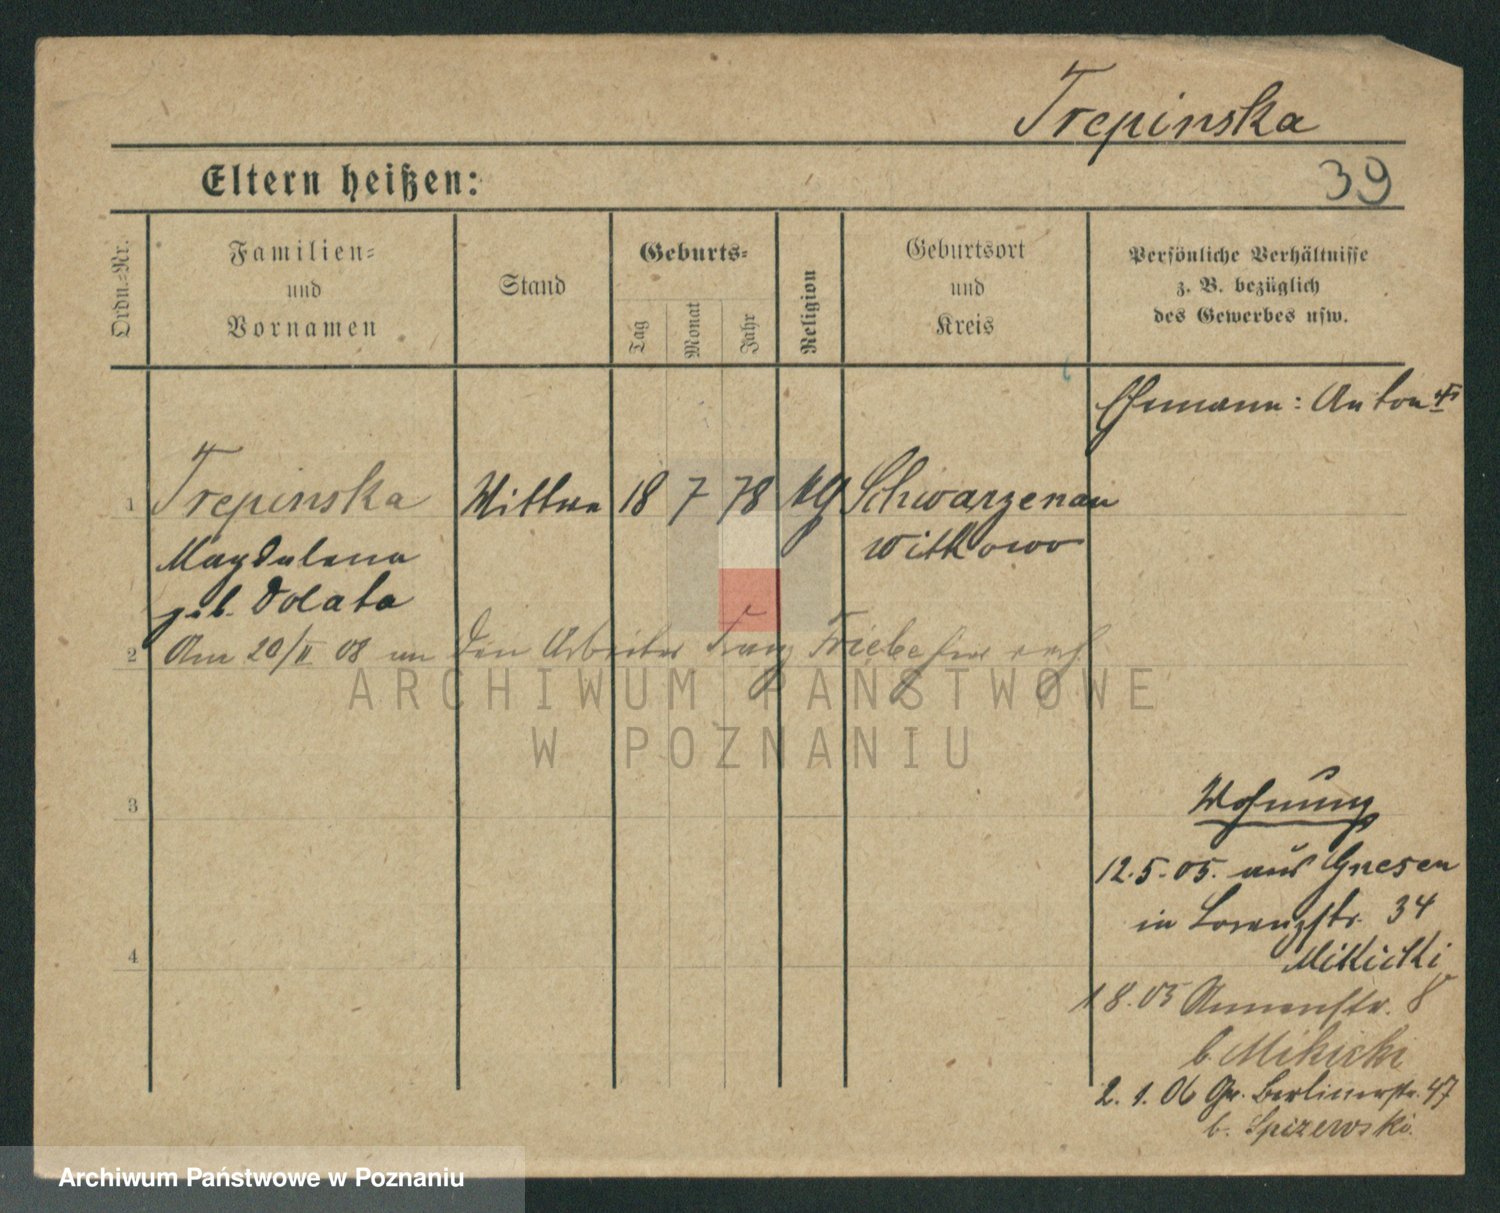 Trepinska
39
Eltern heißen:
Ordn.-Nr.
Familien-
und
Vornamen
Stand
Geburts-
Tag
Monat
Jahr
Religion
Geburtsort
und
Kreis
Persönliche Verhältnisse
z. B. bezüglich
des Gewerbes usw.
Ehemann: Anton
1 Trepinska Wittwe 18 7 78 Schwarzenau
Magdalena Witkowo
geb. Dolata
2 Am 20/II 08 an den Arbeiter Franz
ARCHIWUM PAŃSTWOWE
W POZNANIU
3
Wohnung
12.5.05. aus Gnesen
in Lorenzstr. 34
4
Mikicki
1 8.05 Annenstr. 8
b. Mikicki
2. 1. 06 Gr. Berlinerstr. 47
b. Spizewski.
Archiwum Państwowe w Poznaniu